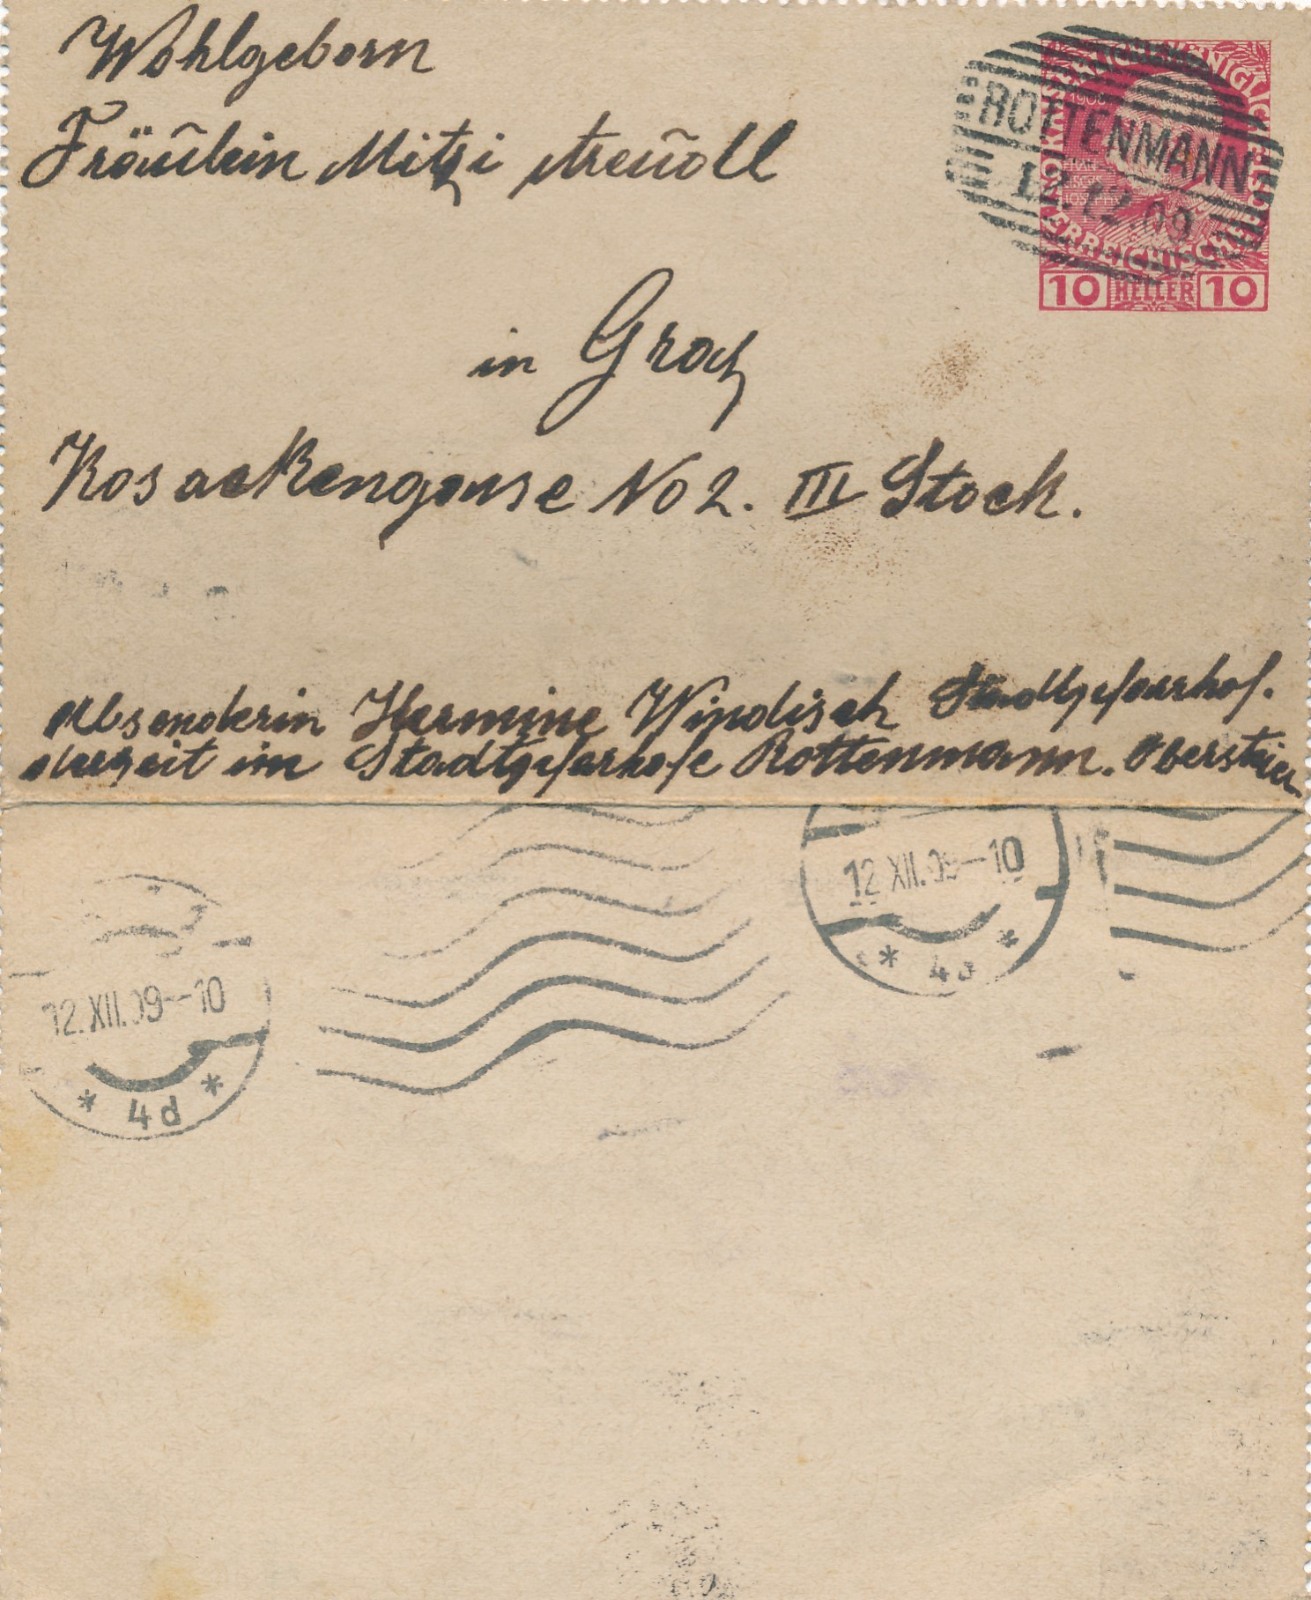 Wohlgeborn
Fräulein Mitzi
in Graz
No 2. III Stock.
Absenderin Hermine Windisch Stadtpfarrhof.
derzeit im Stadtpfarrhofe Rottenmann. Obersteier.
1908
10 HELLER 10
ROTTENMANN
12.12.09
12 XII.09-10
12.XII.09-10
* 4d *